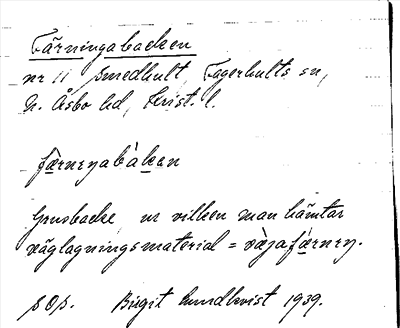 Färningabacken
nr 11 Smedhult, Fagerhults sn,
N. Åsbo hd, Krist. l.
fæ̀rnɩŋabàkan
Grusbacke ur vilken man hämtar
väglagningsmaterial = vä̀jafærnɩŋ.
Birgit Lundkvist 1939.